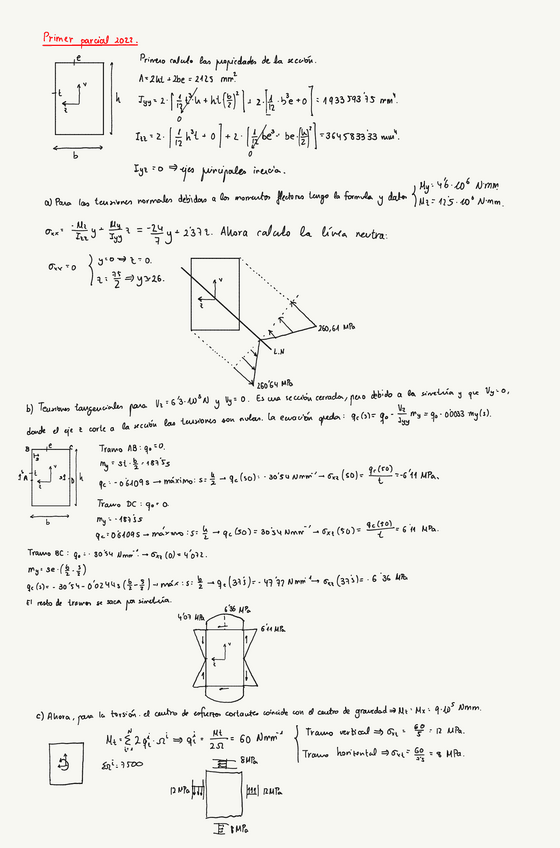 Primer parcial 2022.
Primero calculo las propiedades de la sección.
e
A = 2ht + 2be = 2125 mm²
t
y
z
h
b
Jyy = 2·[1/12 t³h + ht(b/2)²] + 2·[1/12·b³e + 0] = 1933593'75 mm⁴.
0
Izz = 2·[1/12 h³t + 0] + 2·[1/12 be³ + be·(h/2)²] = 3645833'33 mm⁴.
0
Iyz = 0 ⇒ ejes principales inercia.
a) Para las tensiones normales debidas a los momentos flectores tengo la formula y datos { My = 4'6·10⁶ N·mm.
Mz = 12'5·10⁶ N·mm.
σxx = -Mz/Izz y + My/Jyy z = -24/7 y + 2'37 z. Ahora calculo la línea neutra:
σxx = 0 { y=0 ⇒ z=0.
z = 75/2 ⇒ y≈26.
y
z
260,64 MPa
L.N
260'64 MPa
b) Tensiones tangenciales para Vz = 6'3·10³ N y Vy = 0. Es una sección cerrada, pero debido a la simetría y que Vy = 0,
donde el eje z corte a la sección las tensiones son nulas. La ecuación queda: qc(s) = q0 - Vz/Jyy my = q0 - 0'0033 my(s).
B e C
t
A
D
y
z
h
b
Tramo AB: q0 = 0.
my = st·b/2 = 187'5s
qc = -0'6109s → máximo: s = h/2 → qc(50) = -30'54 Nmm⁻¹ → σxz(50) = qc(50)/t = -6'11 MPa.
Tramo DC: q0 = 0
my = -187'5s
qc = 0'6109s → máximo: s = h/2 → qc(50) = 30'54 Nmm⁻¹ → σxz(50) = qc(50)/t = 6'11 MPa.
Tramo BC: q0 = -30'54 Nmm⁻¹ → σxz(0) = 4'072.
my = se·(b/2 - s/2)
qc(s) = -30'54 - 0'0244s(b/2 - s/2) → máx: s = b/2 → qc(37'5) = -47'77 Nmm⁻¹ → σxz(37'5) = -6'36 MPa
El resto de tramos se saca por simetría.
6'36 MPa
4'07 MPa
6'11 MPa
y
z
c) Ahora, para la torsión. el centro de esfuerzos cortantes coincide con el centro de gravedad ⇒ Mt = Mx = 9·10⁵ Nmm.
Mt = Σ 2qtⁱ·Ωⁱ ⇒ qtⁱ = Mt/2Ω = 60 Nmm⁻¹ { Tramo vertical ⇒ σxt = 60/5 = 12 MPa.
ΣΩⁱ = 7500
Tramo horizontal ⇒ σxt = 60/7'5 = 8 MPa.
8 MPa
12 MPa
12 MPa
8 MPa